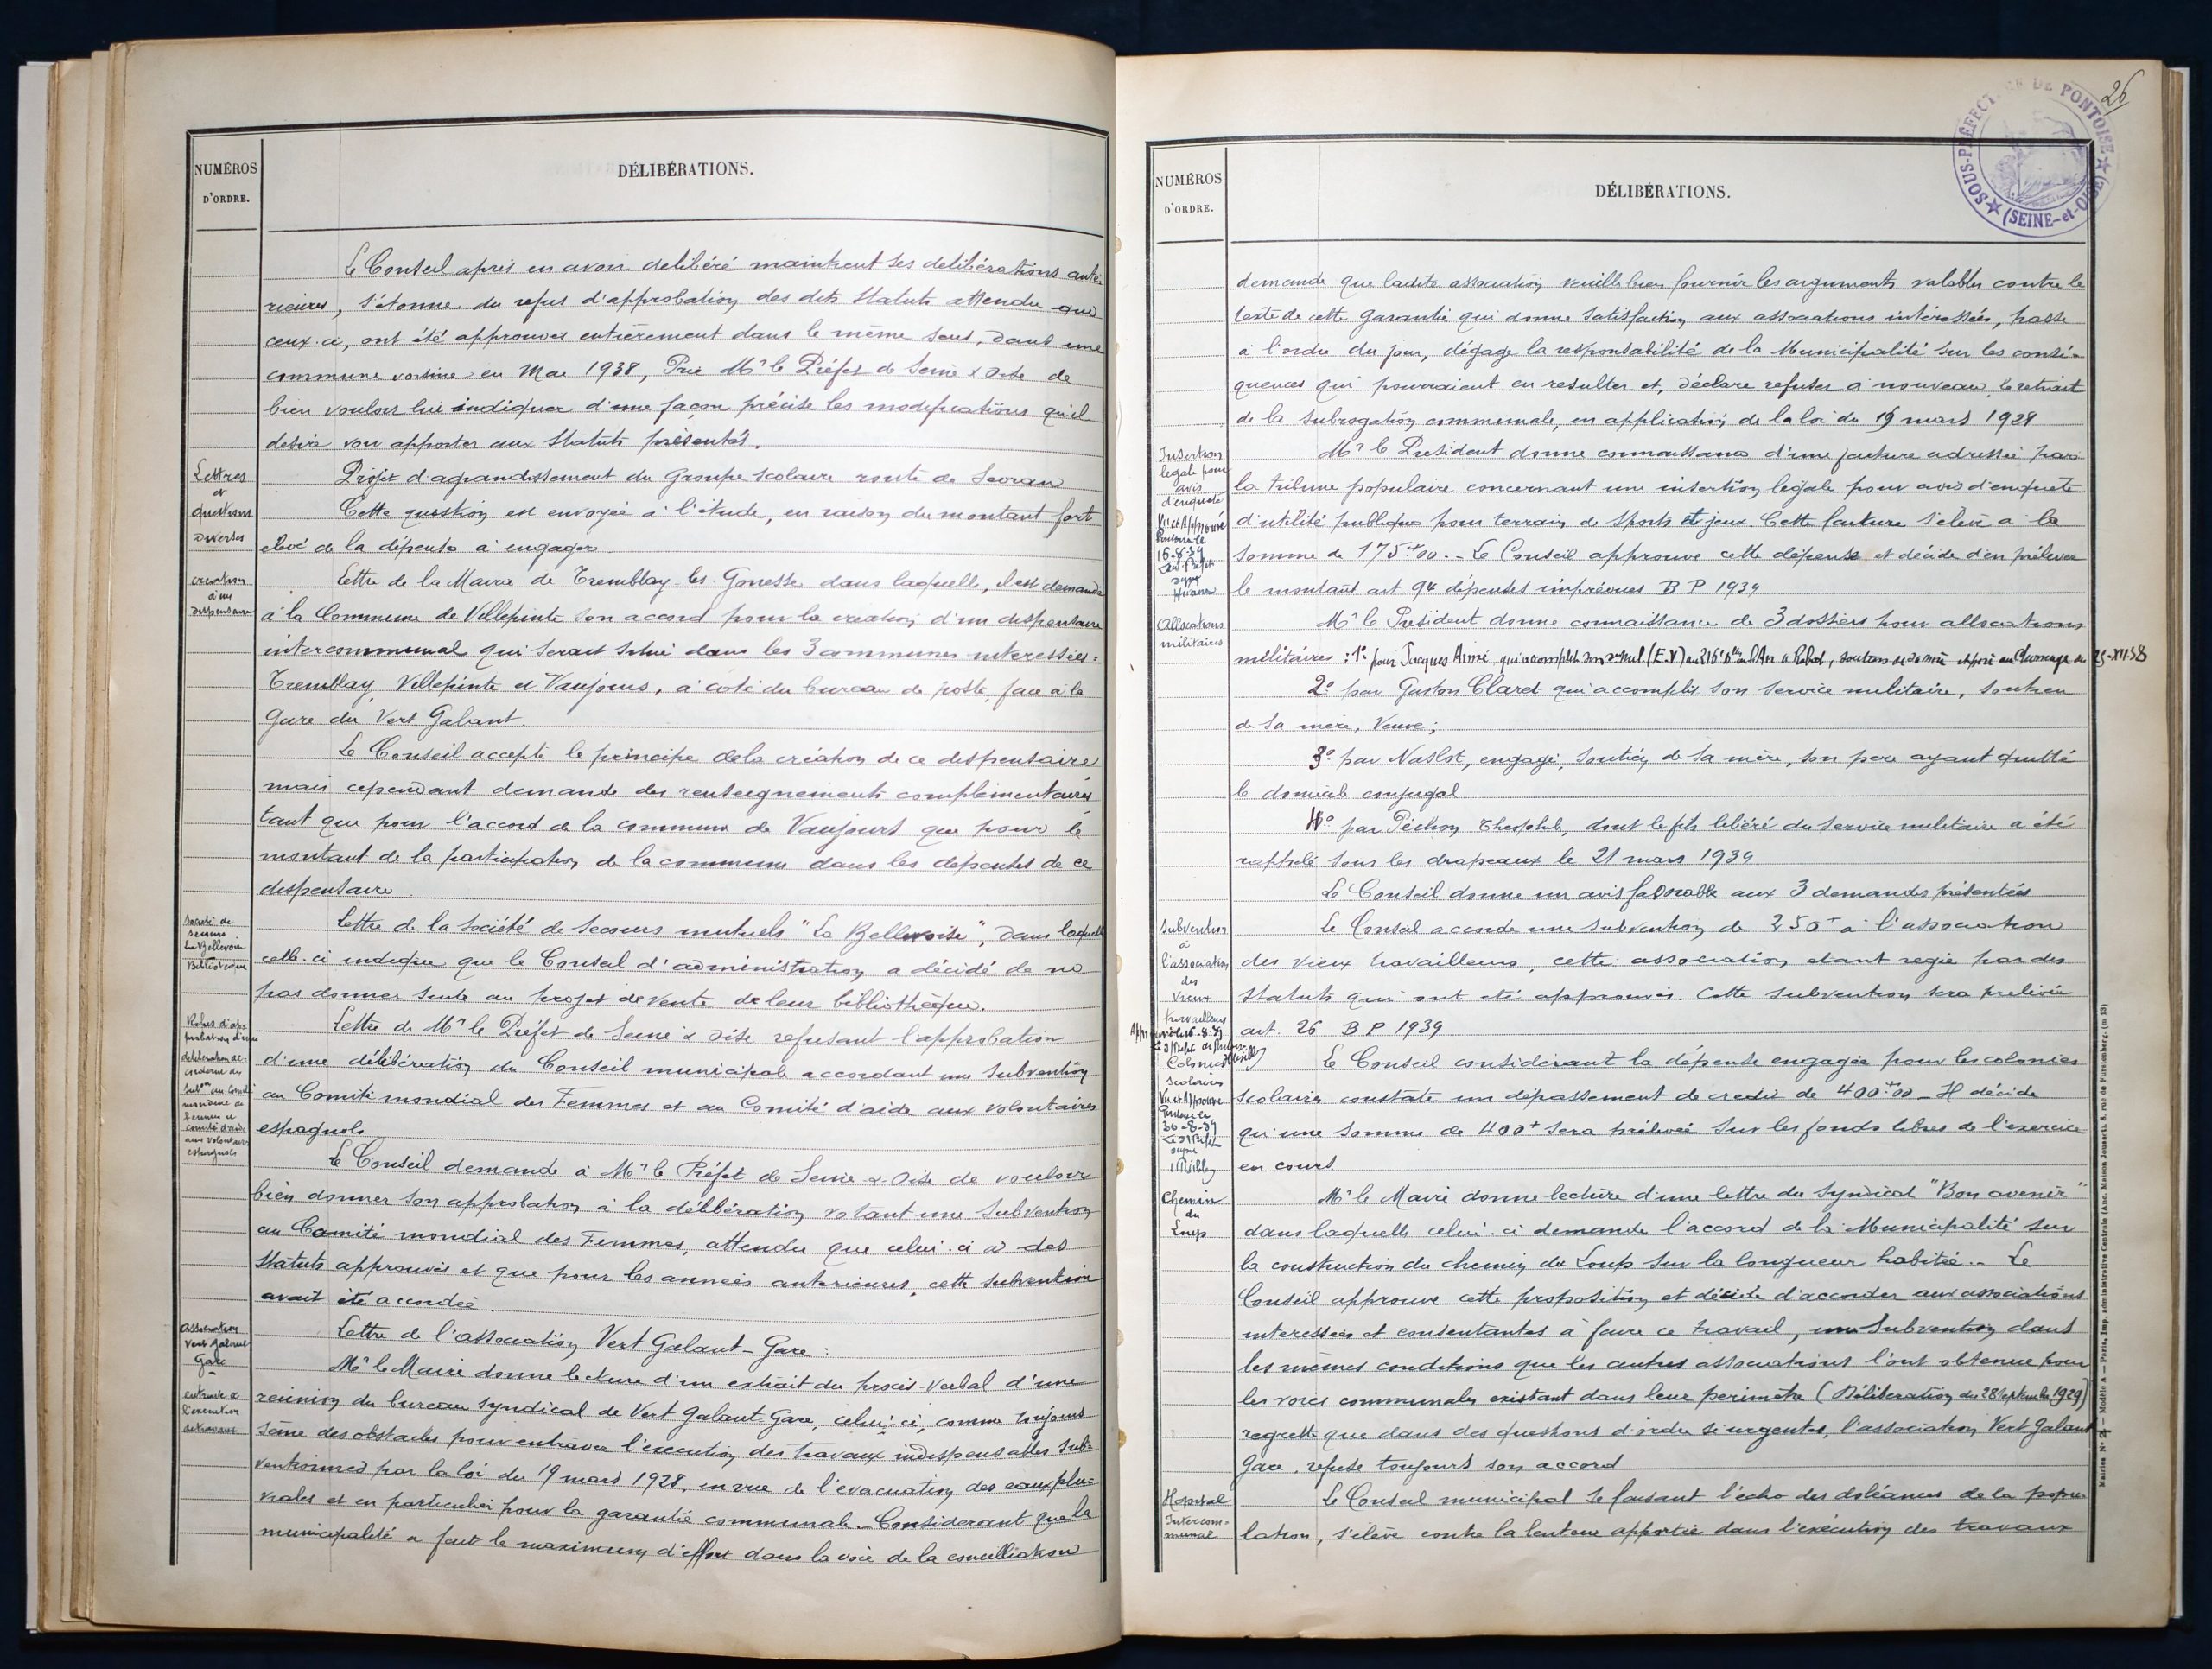 NUMÉROS
D'ORDRE.
DÉLIBÉRATIONS.
Le Conseil après en avoir délibéré maintient ses délibérations anté-
rieures, s'étonne du refus d'approbation des dits Statuts attendu que
ceux-ci, ont été approuvés entièrement dans le même sens, dans une
commune voisine en Mai 1938, Prie Mr le Préfet de Seine & Oise de
bien vouloir lui indiquer d'une façon précise les modifications qu'il
désire voir apporter aux Statuts présentés.
Lettres
et
questions
diverses
Projet d'agrandissement du Groupe scolaire route de Sevran
Cette question est envoyée à l'étude, en raison du montant fort
élevé de la dépense à engager.
création
d'un
dispensaire
Lettre de la Mairie de Tremblay-les-Gonesse dans laquelle, il est demandé
à la Commune de Villepinte son accord pour la création d'un dispensaire
intercommunal qui serait situé dans les 3 communes intéressées :
Tremblay, Villepinte et Vaujours, à côté du bureau de poste, face à la
Gare du Vert Galant.
Le Conseil accepte le principe de la création de ce dispensaire
mais cependant demande des renseignements complémentaires
tant que pour l'accord de la commune de Vaujours que pour le
montant de la participation de la commune dans les dépenses de ce
dispensaire.
Société de
secours
La Bellevoise
Bibliothèque
Lettre de la Société de Secours mutuels "La Bellevoise", dans laquelle
celle-ci indique que le Conseil d'administration a décidé de ne
pas donner suite au projet de vente de leur bibliothèque.
Refus d'ap-
probation d'une
délibération ac-
cordant des
Subon au Comité
mondial des
Femmes et
comité d'aide
aux volontaires
espagnols
Lettre de Mr le Préfet de Seine & Oise refusant l'approbation
d'une délibération du Conseil municipal accordant une Subvention
au Comité mondial des Femmes et au Comité d'aide aux volontaires
espagnols
Le Conseil demande à Mr le Préfet de Seine & Oise de vouloir
bien donner son approbation à la délibération votant une Subvention
au Comité mondial des Femmes, attendu que celui-ci a des
Statuts approuvés et que pour les années antérieures, cette subvention
avait été accordée.
Association
Vert Galant
Gare
entrave à
l'exécution
de travaux
Lettre de l'association Vert Galant-Gare :
Mr le Maire donne lecture d'un extrait du procès-verbal d'une
réunion du bureau syndical de Vert Galant-Gare, celui-ci, comme toujours
sème des obstacles pour entraver l'exécution des travaux indispensables sub-
ventionnés par la loi du 19 mars 1928, en vue de l'évacuation des eaux plu-
viales et en particulier pour la garantie communale. Considérant que la
municipalité a fait le maximum d'effort dans la voie de la conciliation
26
SOUS-PRÉFECTURE DE PONTOISE
(SEINE-et-OISE)
NUMÉROS
D'ORDRE.
DÉLIBÉRATIONS.
demande que ladite association veuille bien fournir les arguments valables contre le
texte de cette garantie qui donne satisfaction aux associations intéressées, passe
à l'ordre du jour, dégage la responsabilité de la Municipalité sur les consé-
quences qui pourraient en résulter et, déclare refuser à nouveau, le retrait
de la subrogation communale, en application de la loi du 19 mars 1928
Insertion
légale pour
avis
d'enquête
Vu et Approuvé
Pontoise le
16-8-39
Le S/Préfet
signé
Mr le Président donne connaissance d'une facture adressée par
la tribune populaire concernant une insertion légale pour avis d'enquête
d'utilité publique pour terrain de Sports et jeux. Cette facture s'élève à la
somme de 175frs00.- Le Conseil approuve cette dépense et décide d'en prélever
le montant art. 94 dépenses imprévues B P 1939
Allocations
militaires
Mr le Président donne connaissance de 3 dossiers pour allocations
militaires : 1° pour Jacques Aimé qui accomplit son s. mil. (E.V) au 316e à Rabat, soutien de sa mère 25-XII-38
2° par Gaston Claret qui accomplit son service militaire, soutien
de sa mère, Veuve ;
3° par Naslot, engagé, soutien de sa mère, son père ayant quitté
le domicile conjugal
4° par Péchon Théophile, dont le fils libéré du service militaire a été
rappelé sous les drapeaux le 21 mars 1939
Le Conseil donne un avis favorable aux 3 demandes présentées
Subvention
à
l'association
des
vieux
travailleurs
Le Conseil accorde une subvention de 250f à l'association
des vieux travailleurs, cette association étant régie par des
Statuts qui ont été approuvés. Cette subvention sera prélevée
art. 26 B P 1939
Colonies
Scolaires
Vu et Approuvé
Pontoise le
30-8-39
Le S/Préfet
signé
Le Conseil considérant la dépense engagée pour les colonies
scolaires constate un dépassement de crédit de 400frs00 _ Il décide
qu'une somme de 400f sera prélevée sur les fonds libres de l'exercice
en cours.
Chemin
du
Loup
Mr le Maire donne lecture d'une lettre du Syndicat "Bon avenir"
dans laquelle celui-ci demande l'accord de la Municipalité sur
la construction du chemin du Loup sur la longueur habitée.- Le
Conseil approuve cette proposition et décide d'accorder aux associations
intéressées et consentantes à faire ce travail, une Subvention dans
les mêmes conditions que les autres associations l'ont obtenue pour
les voies communales existant dans leur périmètre (Délibération du 28 septembre 1929)
regrette que dans des questions d'ordre si urgentes, l'association Vert Galant
Gare, refuse toujours son accord
Hopital
Intercom-
munal
Le Conseil municipal se faisant l'écho des doléances de la popu-
lation, s'élève contre la lenteur apportée dans l'exécution des travaux